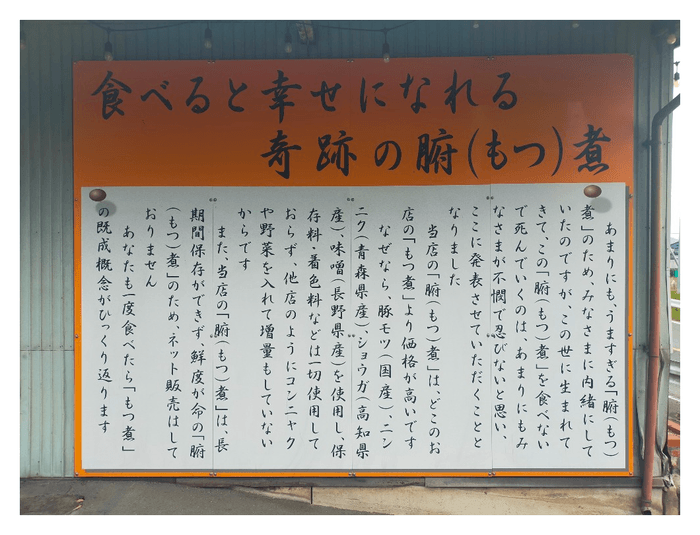 食べると幸せになれる
奇跡の腑(もつ)煮
あまりにも、うますぎる「腑(もつ)
煮」のため、みなさまに内緒にして
いたのですが、この世に生まれて
きて、この「腑(もつ)煮」を食べない
で死んでいくのは、あまりにもみ
なさまが不憫で忍びないと思い、
ここに発表させていただくことと
なりました
当店の「腑(もつ)煮」は、どこのお
店の「もつ煮」より価格が高いです
なぜなら、豚モツ(国産)、ニン
ニク(青森県産)、ショウガ(高知県
産)、味噌(長野県産)を使用し、保
存料・着色料などは一切使用して
おらず、他店のようにコンニャク
や野菜を入れて増量もしていない
からです
また、当店の「腑(もつ)煮」は、長
期間保存ができず、鮮度が命の「腑
(もつ)煮」のため、ネット販売はして
おりません
あなたも一度食べたら「もつ煮」
の既成概念がひっくり返ります